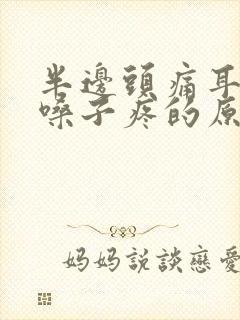 半邊頭痛耳
嗓子疼的原
妈妈説談戀愛